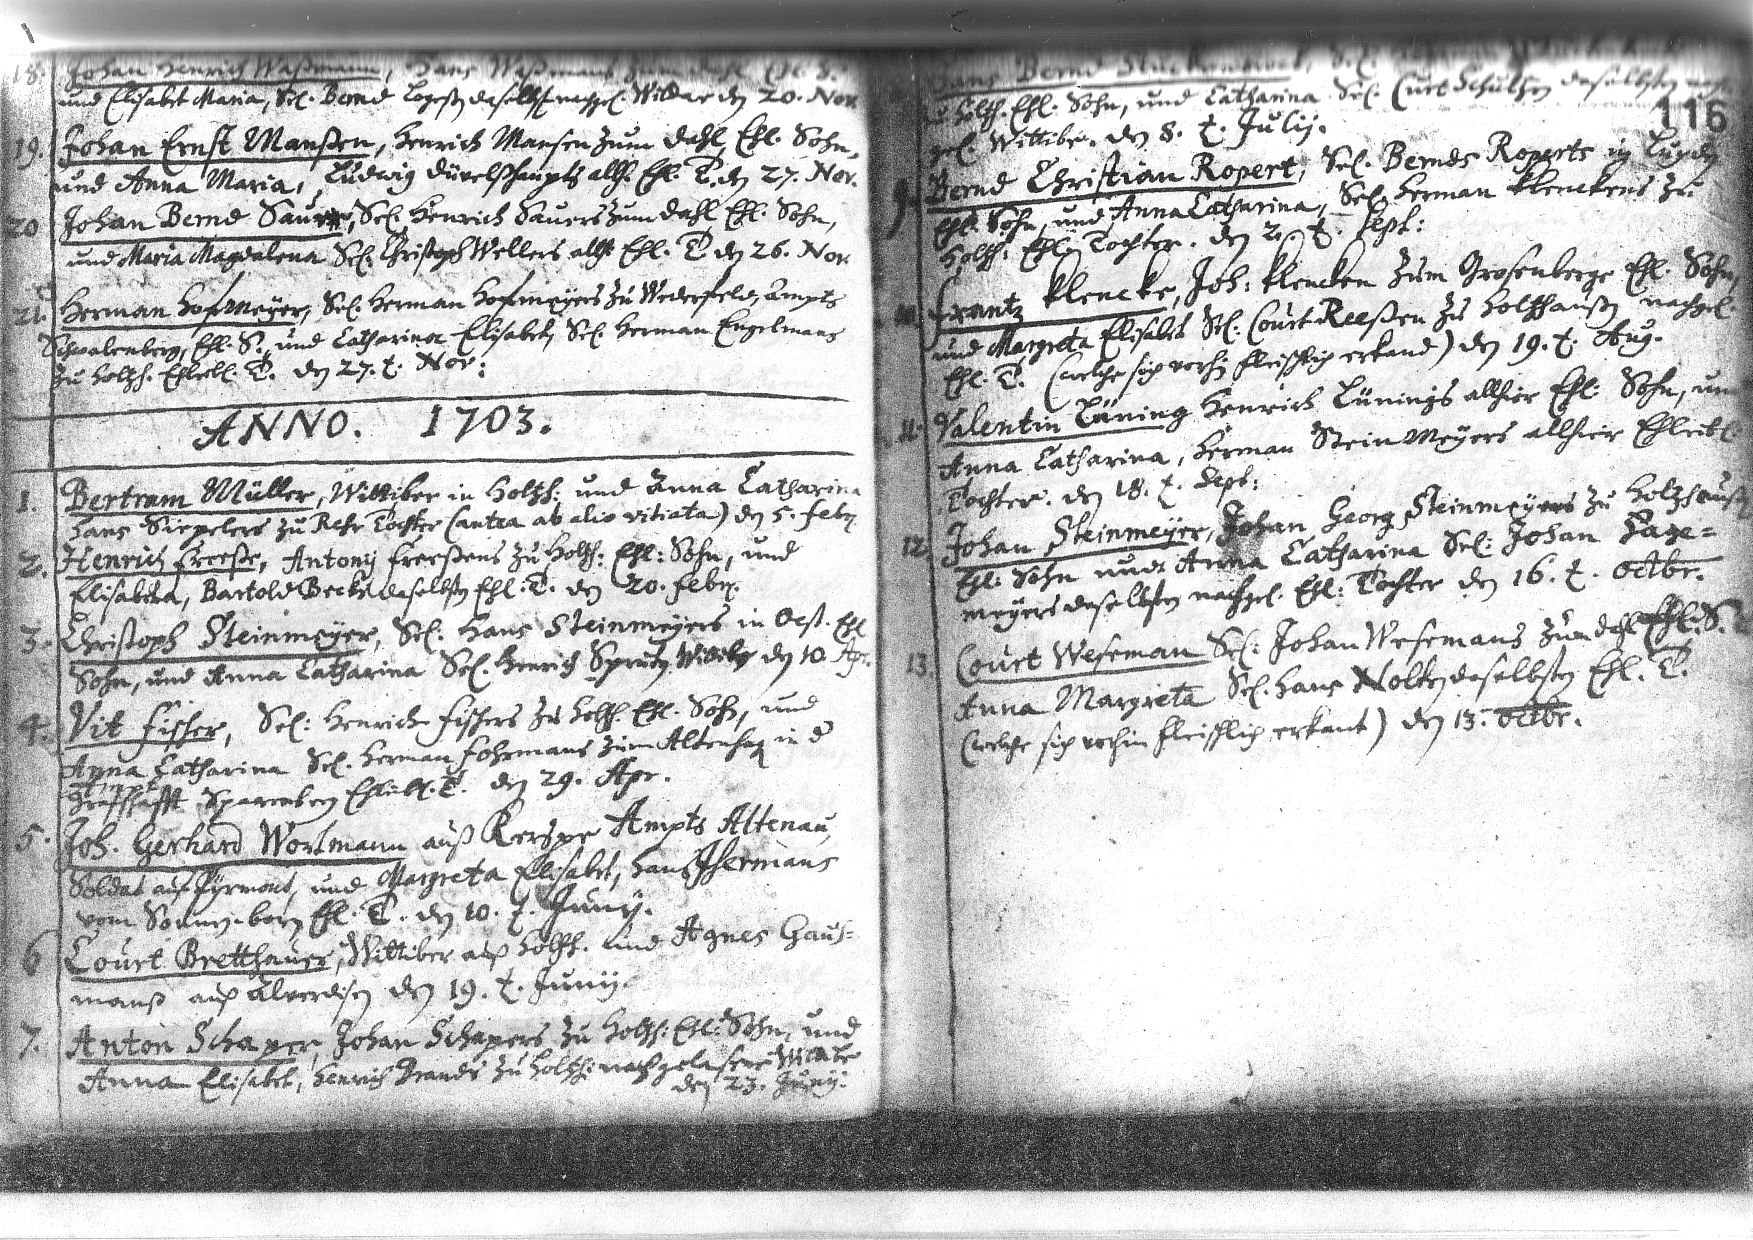 18. Johan Henrich Waßmann, Hans Waßmans zum dahl Ehl. S.
und Elisabet Maria, Sel. Bernd daselbst nachgel. Witbe den 20. Nov.
19. Johan Ernst Manßen, Henrich Mansen zum dahl Ehl. Sohn,
und Anna Maria, Ludwig düvelshaupts allh. Ehl. T. den 27. Nov.
20 Johan Bernd Saur, Sel. Henrich Sauers zum dahl Ehl. Sohn,
und Maria Magdalena Sel. Christoph Wellers allh. Ehl. T den 26. Nov.
21. Herman Hofmeyer, Sel. Herman Hofmeyers zu Wederfeld, Ampts
Schwalenberg, Ehl. S., und Catharina Elisabet, Sel. Herman Engelmans
zu Holtzh. Ehleibl. T. den 27. t. Nov:
ANNO. 1703.
1. Bertram Müller, Wittiber in Holtzh: und Anna Catharina
Hans Siepelers zu Rehr Tochter (antea ab alio vitiata) den 5. febr
2. Henrich Freese, Antonij Freeßens zu Holtzh: Ehl: Sohn, und
Elisabeta, Bartold Beckes daselbsten Ehl. T. den 20. febr.
3. Christoph Steinmeyer, Sel. Hans Steinmeyers in Oest. Ehl
Sohn, und Anna Catharina Sel. Henrich Witibe den 10. Apr.
4. Vit Fisher, Sel: Henrich Fishers zu Holtzh. Ehl. Sohn, und
Anna Catharina Sel. Herman Fohrmans zum Altenhag in d
Graffschafft Sparenberg Ehleibl. T. den 29. Apr.
5. Joh. Gerhard Wortmann auß Kerspe Ampts Altenau,
Soldat auf Pyrmont, und Margreta Elisabet, Hans
vom Sonnenborn Ehl. T. den 10. t. Junij.
6 Court Bretthauer, Wittiber auß Holtzh. und Agnes Haus=
manß auß Alverdisen den 19. t. Junij.
7. Anton Schaper, Johan Schapers zu Holtzh: Ehl: Sohn, und
Anna Elisabet, Henrich Brands zu Holtzh: nachgelasene Witibe
den 23. Junij.
Hans Bernd
zu Holtzh. Ehl. Sohn, und Catharina Sel. Curt Schulzen daselbsten
gel. Wittibe. den 8. t. Julij.
116
9. Bernd Christian Ropert, Sel. Bernds Roperts in Lugden
Ehl. Sohn, und Anna Catharina, Sel. Herman Klenckens zu
Holtzh: Ehl. Tochter. den 2. t. Sept:
10. Frantz Klencke, Joh: Klencken zum Grosenberge Ehl. Sohn,
und Margreta Elisabet Sel: Court Reeßen zu Holtzhaußen nachgel.
Ehl. T. (welche sich vorhin fleischlich erkand) den 19. t. Aug.
11. Valentin Lüning Henrich Lünings allhier Ehl. Sohn, und
Anna Catharina, Herman SteinMeyers allhier Ehleibl.
Tochter. den 18. t. Sept:
12 Johan Steinmeyer, Johan Georg Steinmeyers zu Holtzhausen
Ehl: Sohn und Anna Catharina Sel: Johan Hage=
meyers daselbsten nachgel. Ehl: Tochter den 16. t. octbr.
13. Court Weseman Sel: Johan Wesemans zum dahl Ehl: S.
Anna Margreta Sel. Hans Nolten daselbsten Ehl. T.
(welche sich vorhin fleischlich erkant) den 13. octbr.